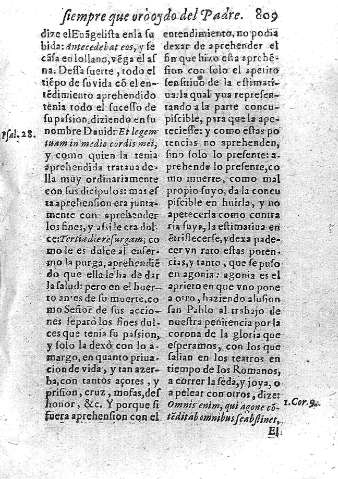 siempre que vno oydo del Padre. 809
dize el Euãgelista en la su
bida: Antecedebat eos, y se
cãsa en lo llano, vẽga el as
na. Dessa suerte, todo el
tiẽpo de su vida cõ el en-
tẽdimiẽto aprehendido
tenia todo el sucesso de
su passion, diziendo en su
nombre Dauid: Et legem
tuam in medio cordis mei,
Psal. 28.
y como quien la tenia
aprehendida trataua de-
lla muy ordinariamente
con sus dicipulos: mas es
ta aprehension era junta-
mente con aprehender
los fines, y assi le era dul-
ce: Tertia die resurgam; co
mo le es dulce al enfer-
mo la purga, aprehendiẽ
do que ella le ha de dar
la salud: pero en el huer-
to antes de su muerte, co
mo Señor de sus accio-
nes separò los fines dul-
ces que tenia su passion,
y solo la dexò con lo a-
margo, en quanto priua-
cion de vida, y tan azer-
ba, con tantos açotes, y
prision, cruz, mofas, des
honor, &c. Y porque si
fuera aprehension con el
entendimiento, no podia
dexar de aprehender el
fin que hizo esta aprehẽ-
sion con solo el apetito
sensitiuo de la estimati-
ua, la qual yua represen-
tando a la parte concu-
piscible, para que la ape-
teciesse: y como estas po-
tencias no aprehenden,
sino solo lo presente: a-
prehende lo presente, co
mo muerte, como mal
propio suyo, da la concu
piscible en huirla, y no
apetecerla como contra
ria suya, la estimatiua en
ẽtristecerse, y dexa pade-
cer vn rato estas poten-
cias, y tanto, que se puso
en agonia: agonia es el
aprieto en que vno pone
a otro, haziendo alusion
san Pablo al trabajo de
nuestra penitencia por la
corona de la gloria que
esperamos, con los que
salian en los teatros en
tiempo de los Romanos,
a correr la seda, y joya, o
a pelear con otros, dize:
Omnis enim, qui agone cõ-
tẽdit ab omnibus se abstinet,
1. Cor. 9.
El